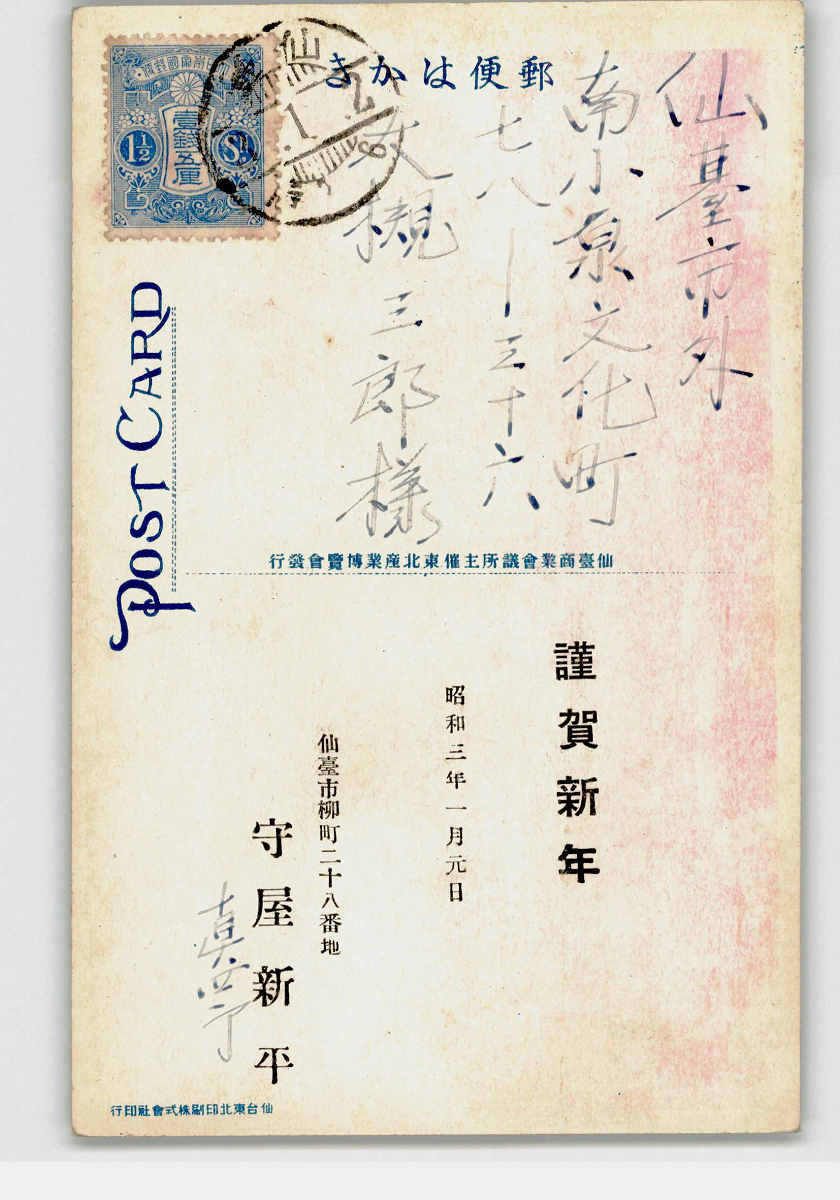 郵便はかき
壹錢五厘
1½ Sn.
仙臺市外
南小泉文化町
七八ー三十六
三郎様
POST CARD
仙臺商業會議所主催東北産業博覽會發行
謹賀新年
昭和三年一月元日
仙臺市柳町二十八番地
守屋新平
仙台東北印刷株式會社印行